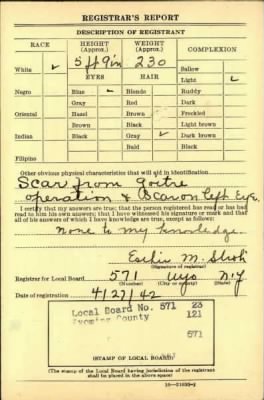 REGISTRAR'S REPORT
DESCRIPTION OF REGISTRANT
RACE HEIGHT (Approx.) WEIGHT (Approx.) COMPLEXION
White ✓ 5 ft 9 in 230 Sallow
EYES HAIR Light ✓
Negro Blue ✓ Blonde Ruddy
Gray Red Dark
Oriental Hazel Brown Freckled
Brown Black Light brown
Indian Black Gray ✓ Dark brown
Bald Black
Filipino
Other obvious physical characteristics that will aid in identification
Scar from Goitre
operation & Scar on left Eye.
I certify that my answers are true; that the person registered has read or has had
read to him his own answers; that I have witnessed his signature or mark and that
all of his answers of which I have knowledge are true, except as follows:
None to my knowledge.
M.
(Signature of registrar)
Registrar for Local Board 571 Wyo N.Y
(Number) (City or county) (State)
Date of registration 4/27/42
Local Board No. 571 23
Wyoming County 121
571
(STAMP OF LOCAL BOARD)
(The stamp of the Local Board having jurisdiction of the registrant
shall be placed in the above space)